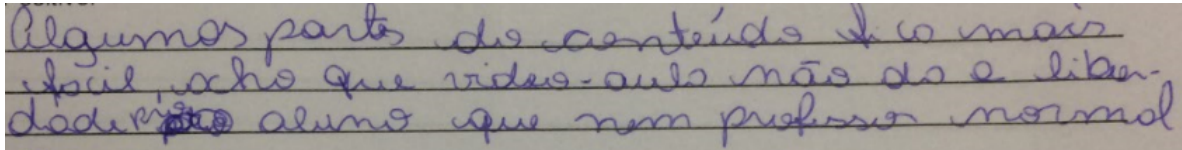 Algumas partes do conteúdo fica mais
facil, acho que video-aula não da a liber-
dade pro aluno que nem professor normal